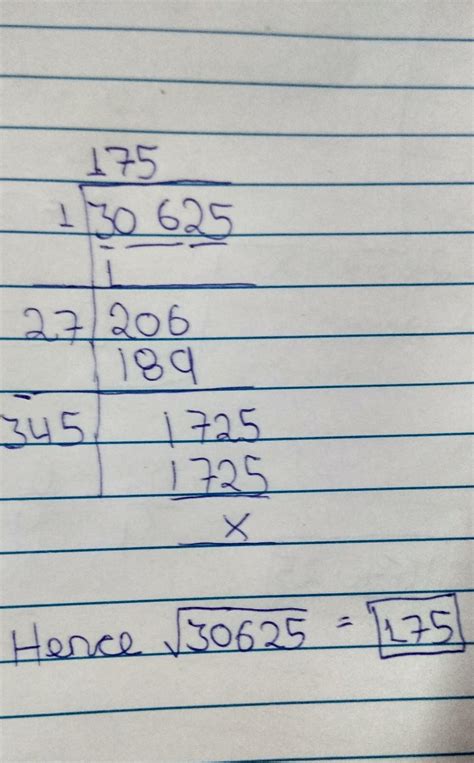 175
1 30 625
1
27 206
189
345 1725
1725
x
Hence √30625 = 175